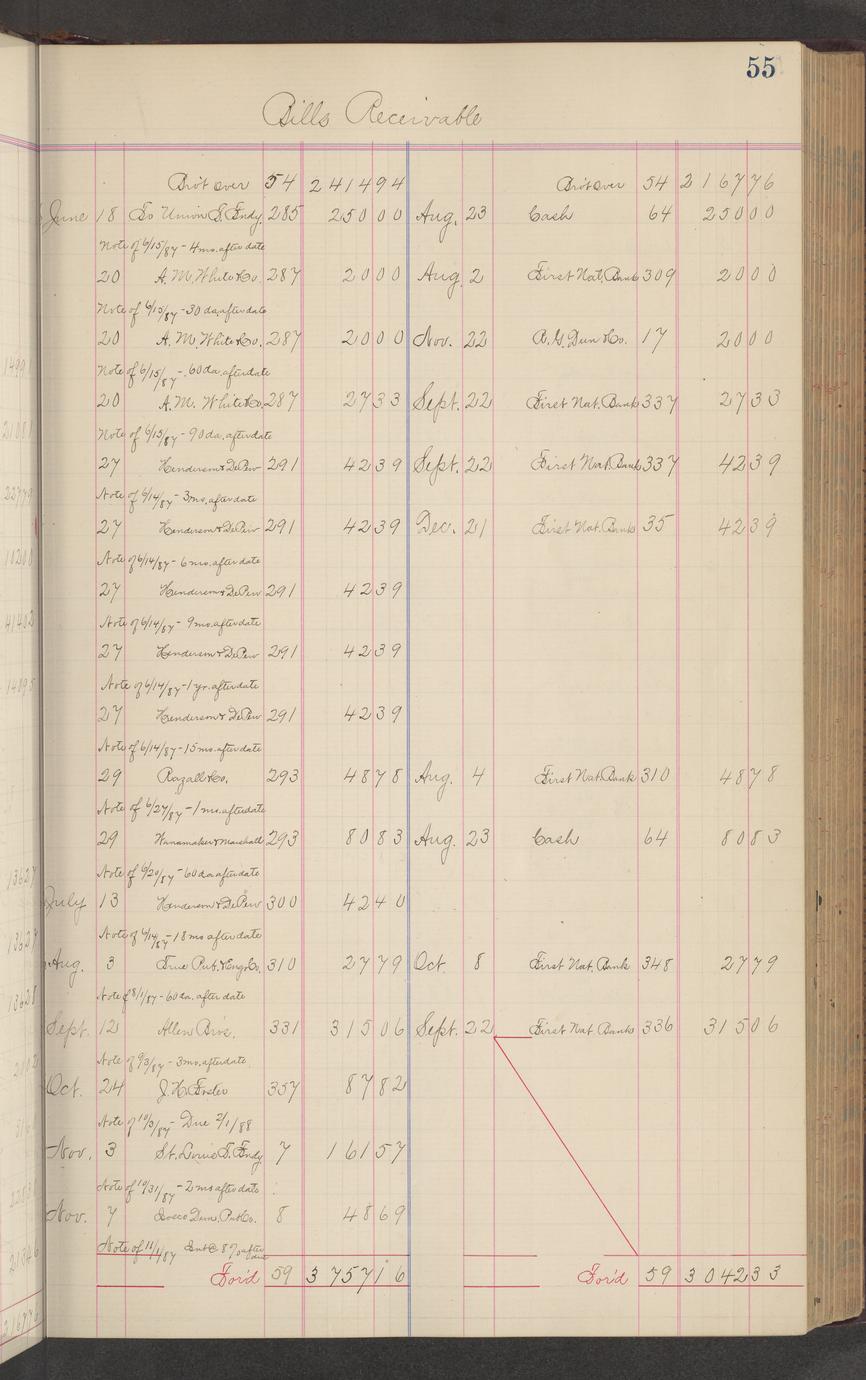 55
Bills Receivable
Bro't over 54 2 4 1 4 9 4 Bro't over 54 2 1 6 7 7 6
June 18 To Union S. Fndy. 285 2 5 0 0 0 Aug. 23 Cash 64 2 5 0 0 0
Note of 6/15/87 - 4 ms. after date
20 A. M. White & Co. 287 2 0 0 0 Aug. 2 First Nat. Bank 309 2 0 0 0
Note of 6/15/87 - 30 da. after date
20 A. M. White & Co. 287 2 0 0 0 Nov. 22 R. G. Dun & Co. 17 2 0 0 0
Note of 6/15/87 - 60 da. after date
20 A. M. White & Co. 287 2 7 3 3 Sept. 22 First Nat. Bank 337 2 7 3 3
Note of 6/15/87 - 90 da. after date
27 Henderson & DePew 291 4 2 3 9 Sept. 22 First Nat. Bank 337 4 2 3 9
Note of 6/14/87 - 3 ms. after date
27 Henderson & DePew 291 4 2 3 9 Dec. 21 First Nat. Bank 35 4 2 3 9
Note of 6/14/87 - 6 ms. after date
27 Henderson & DePew 291 4 2 3 9
Note of 6/14/87 - 9 ms. after date
27 Henderson & DePew 291 4 2 3 9
Note of 6/14/87 - 1 yr. after date
27 Henderson & DePew 291 4 2 3 9
Note of 6/14/87 - 15 ms. after date
29 Razall & Co. 293 4 8 7 8 Aug. 4 First Nat. Bank 310 4 8 7 8
Note of 6/27/87 - 1 ms. after date
29 Wanamaker & Marshall 293 8 0 8 3 Aug. 23 Cash 64 8 0 8 3
Note of 6/20/87 - 60 da. after date
July 13 Henderson & DePew 300 4 2 4 0
Note of 6/14/87 - 18 ms after date
Aug. 3 True Put. & Eng. Co. 310 2 7 7 9 Oct. 8 First Nat. Bank 348 2 7 7 9
Note of 8/1/87 - 60 da. after date
Sept. 12 Allen Bros. 331 3 1 5 0 6 Sept. 22 First Nat. Bank 336 3 1 5 0 6
Note of 9/3/87 - 3 ms. after date
Oct. 24 J. H. 357 8 7 8 2
Note of 10/3/87 - Due 2/1/88
Nov. 3 St. Louis S. Fndy 7 1 6 1 5 7
Note of 10/31/87 - 2 ms after date
Nov. 7 8 4 8 6 9
Note of 11/1/87 Int @ 8% after
For'd 59 3 7 5 7 1 6 For'd 59 3 0 4 2 3 3